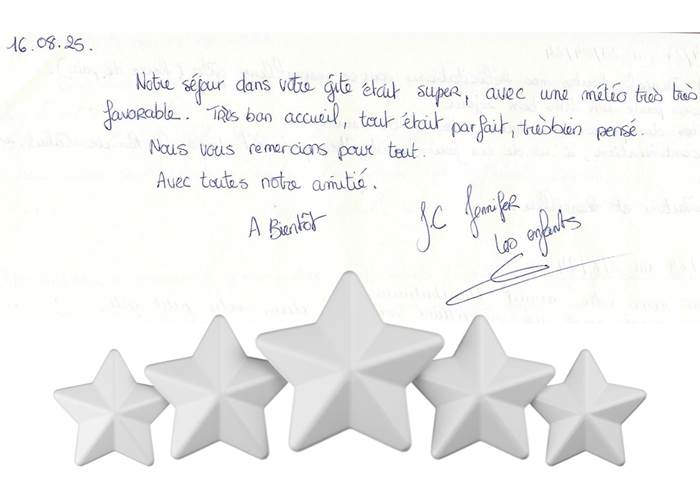 16.08.25.
Notre séjour dans votre gîte était super, avec une météo très très
favorable. Très bon accueil, tout était parfait, très bien pensé.
Nous vous remercions pour tout.
Avec toutes notre amitié.
A Bientôt
J.C Jennifer
Les enfants